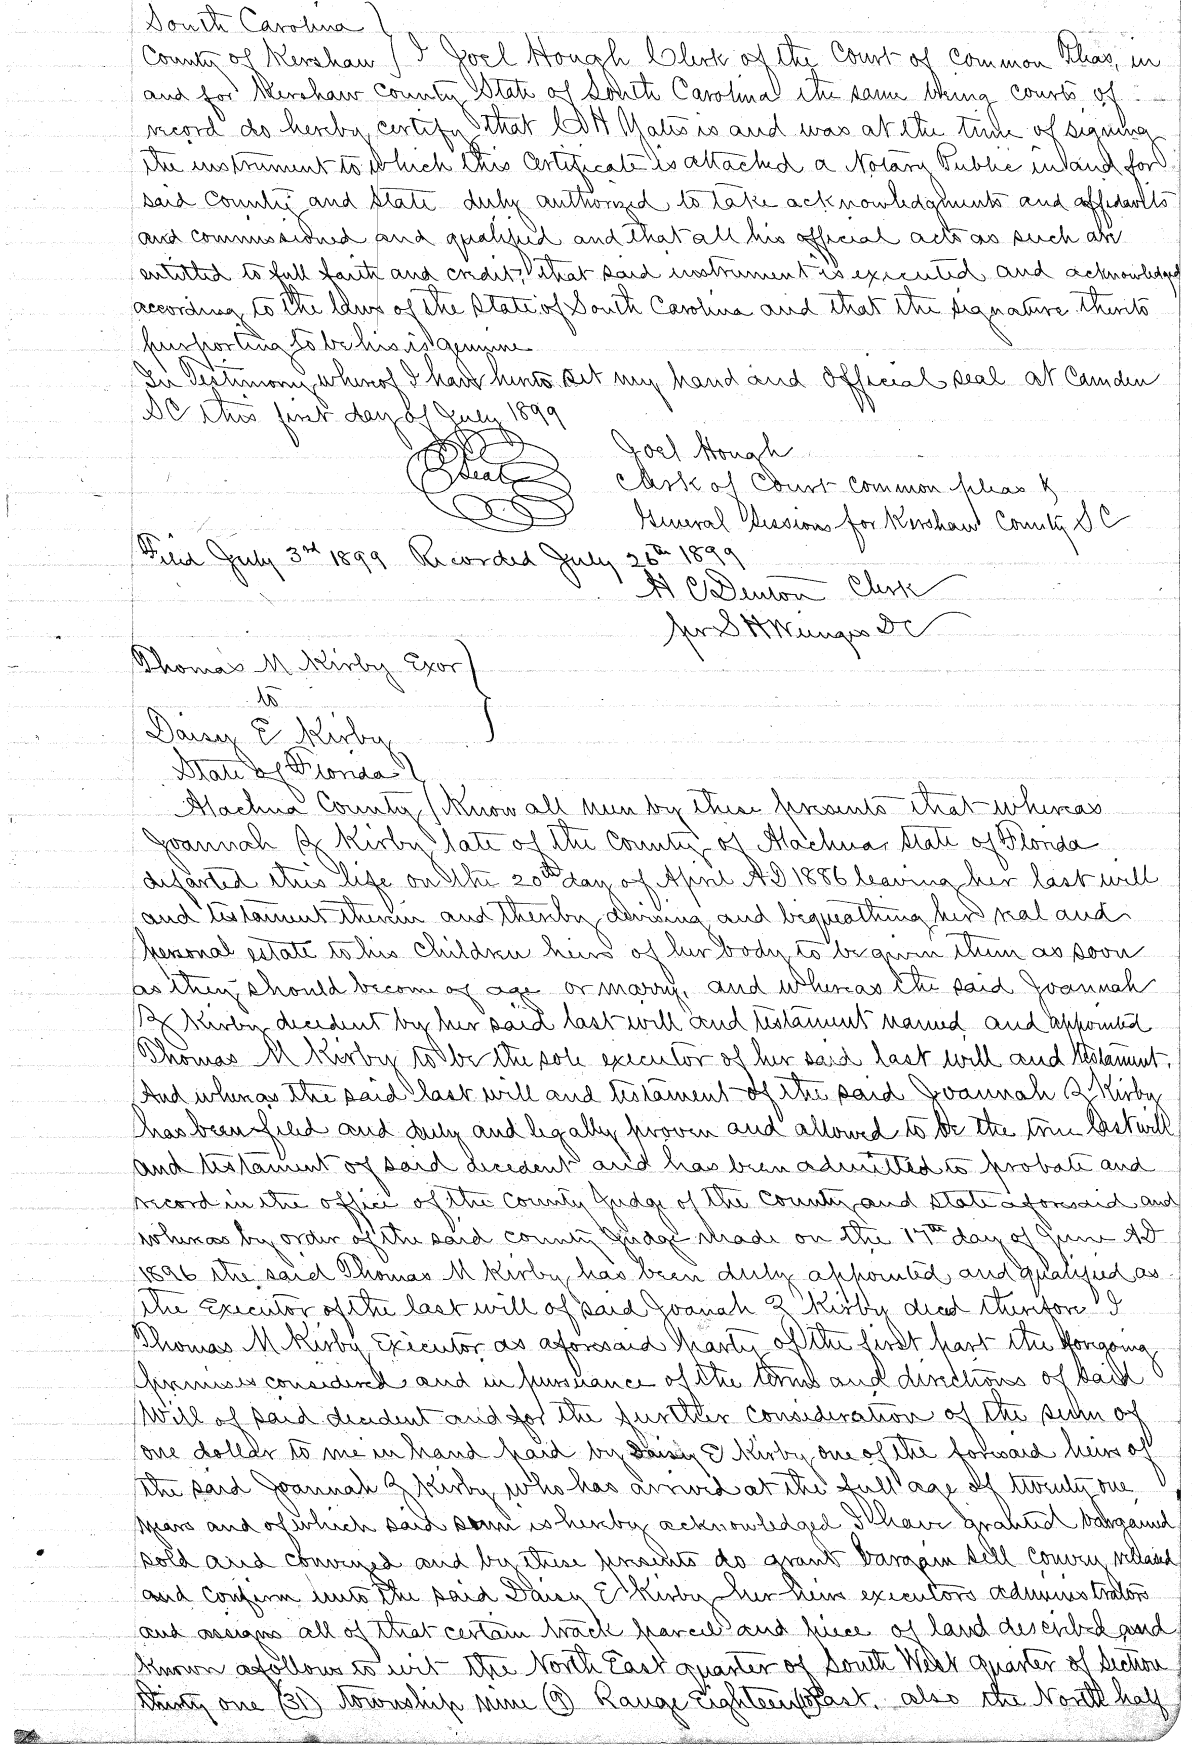 South Carolina }
County of Kershaw } I Joel Hough Clerk of the Court of Common Pleas, in
and for Kershaw County State of South Carolina the same being courts of
record do hereby certify that C H Yates is and was at the time of signing
the instrument to which this Certificate is attached a Notary Public in and for
said County and State duly authorized to take acknowledgments and affidavits
and commissioned and qualified and that all his official acts as such are
entitled to full faith and credit, that said instrument is executed and acknowledged
according to the laws of the State of South Carolina and that the signature thereto
purporting to be his is genuine
In Testimony whereof I have hereto set my hand and Official seal at Camden
SC this first day of July 1899
Seal
Joel Hough
Clerk of Court Common pleas &
General Sessions for Kershaw County SC
Filed July 3rd 1899 Recorded July 26th 1899
H C Denton Clerk
per S H Wienges DC
Thomas M Kirby Exor }
to
Daisy E Kirby
State of Florida }
Alachua County } Know all men by these presents that whereas
Joannah Z Kirby late of the County of Alachua State of Florida
departed this life on the 20th day of April AD 1886 leaving her last will
and testament therein and thereby devising and bequeathing her real and
personal estate to his children heirs of her body to be given them as soon
as they should become of age or marry, and whereas the said Joannah
Z Kirby decedent by her said last will and testament named and appointed
Thomas M Kirby to be the sole executor of her said last will and testament.
And whereas the said last will and testament of the said Joannah Z Kirby
has been filed and duly and legally proven and allowed to be the true last will
and testament of said decedent and has been admitted to probate and
record in the office of the County Judge of the County and State aforesaid and
whereas by order of the said county Judge made on the 17th day of June AD
1896 the said Thomas M Kirby has been duly appointed and qualified as
the Executor of the last will of said Joanah Z Kirby decd therefore I
Thomas M Kirby Executor as aforesaid party of the first part the forgoing
premises considered and in pursuance of the terms and directions of said
Will of said decedent and for the further consideration of the sum of
one dollar to me in hand paid by Daisy E Kirby one of the forsaid heirs of
the said Joannah Z Kirby who has arrived at the full age of twenty one
years and of which said sum is hereby acknowledged I have granted bargained
sold and conveyed and by these presents do grant bargain sell convey release
and confirm unto the said Daisy E Kirby her heirs executors administrators
and assigns all of that certain track parcel and piece of land described and
known as follows to wit the North East quarter of South West quarter of Section
thirty one (31) township nine (9) Range Eighteen East. also the North half